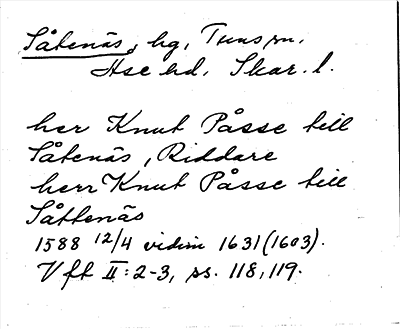 Såtenäs, hg, Tuns sn.
Åse hd. Skar. l.
her Knut Påsse till
Såtenäs, Riddare
herr Knut Påsse till
Såttenäs
1588 12/4 vidim 1631 (1603).
Vft II:2-3, ss. 118, 119.